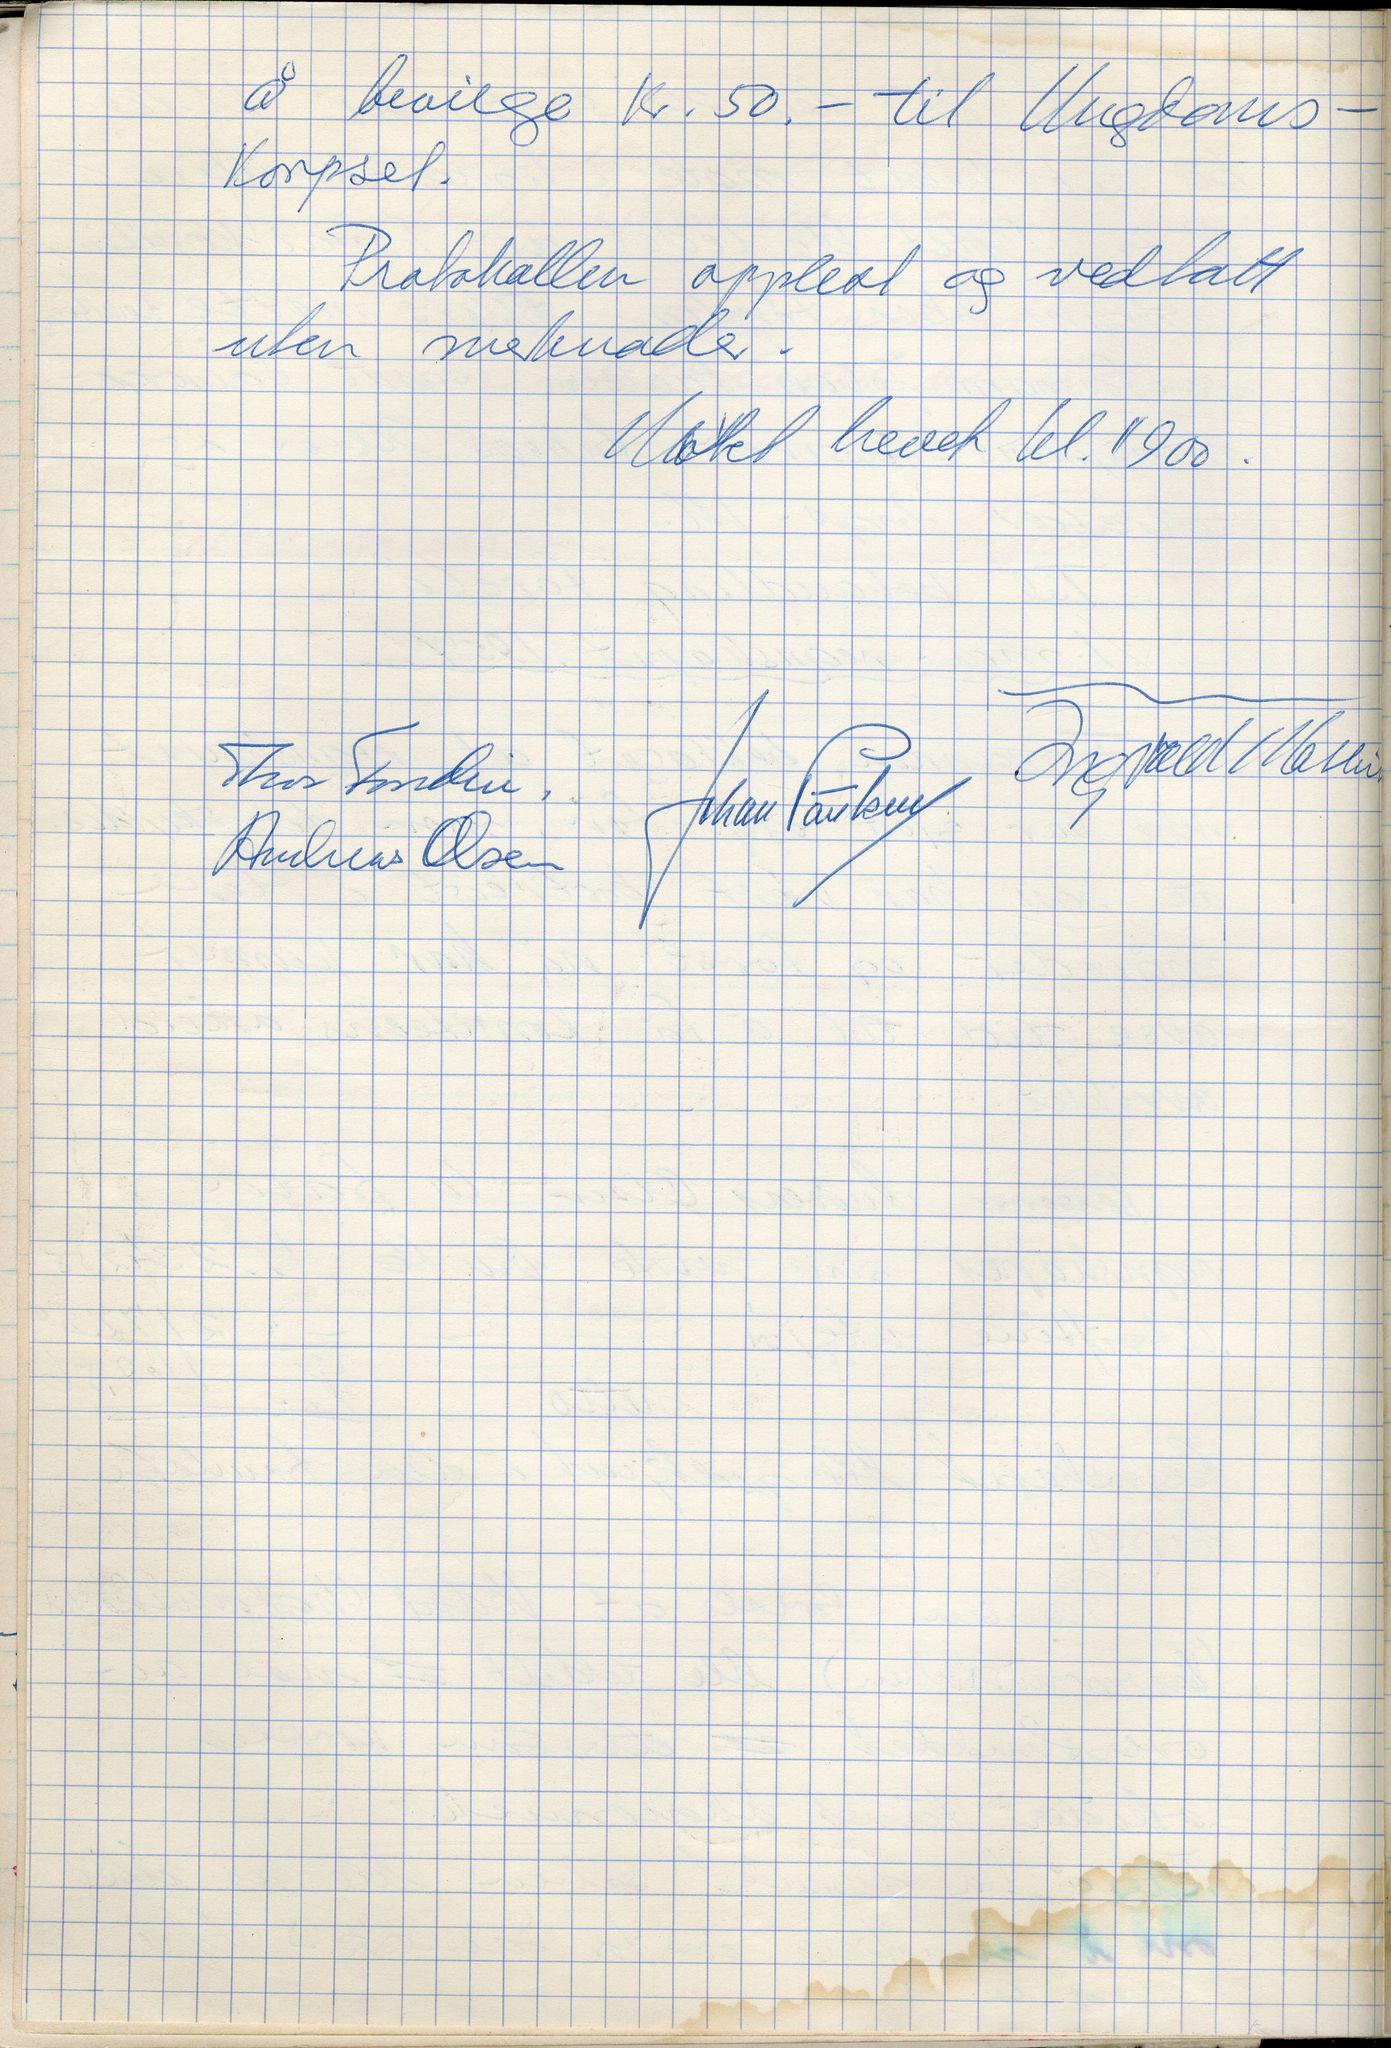 å bevilge kr. 50.- til Ungdoms-
korpset.
Protokollen opplest og vedtatt
uten merknader.
Møtet hevet kl. 1900.
Ingvald
Thor
Johan
Andreas Olsen